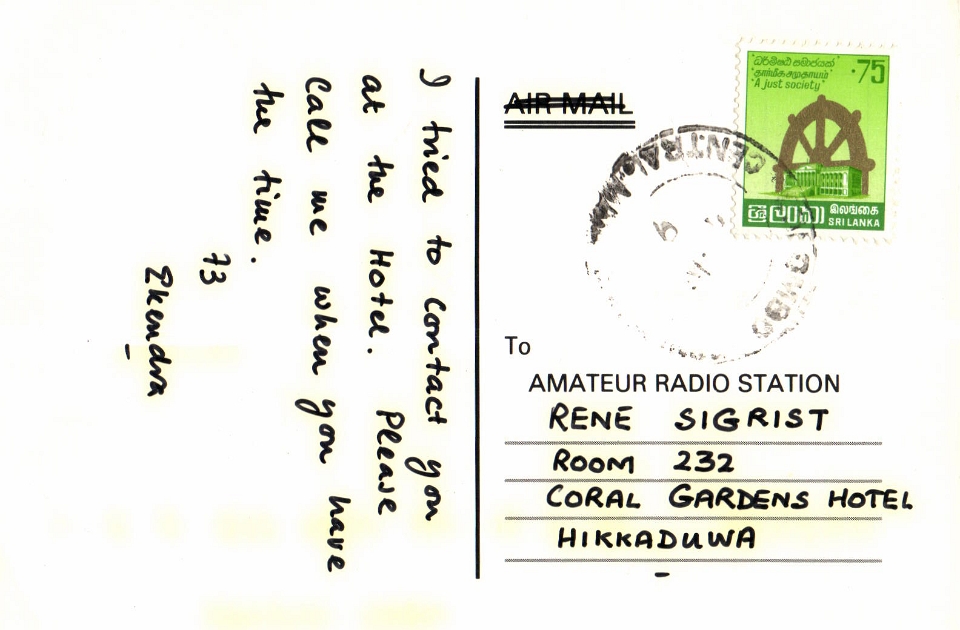 I tried to contact you
at the Hotel. Please
Call me when you have
the time.
73
Ekendra
AIR MAIL
ධර්මිෂ්ඨ සමාජයක්
தார்மீக சமுதாயம்
'A just society'
.75
ශ්‍රී ලංකා
இலங்கை
SRI LANKA
CENTRAL
To
AMATEUR RADIO STATION
RENE SIGRIST
ROOM 232
CORAL GARDENS HOTEL
HIKKADUWA